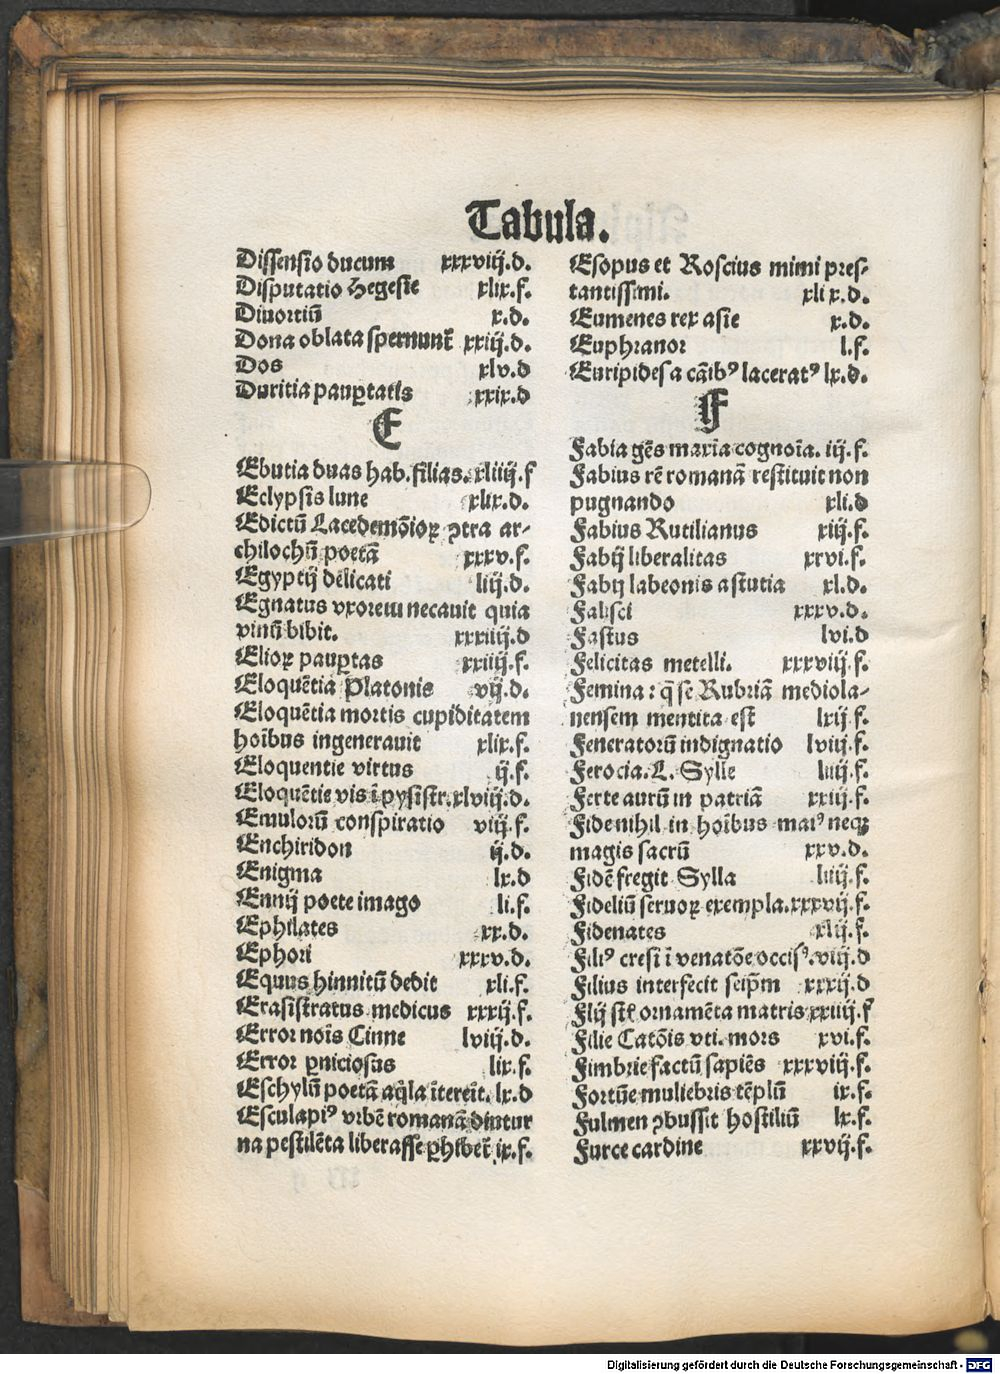 Tabula.
Dissensio ducum xxxviij.d.
Disputatio Hegesie xlix.f.
Diuortiū x.d.
Dona oblata spernunt᷑ xxiij.d.
Dos xlv.d
Duritia paup̲tatis xxix.d
E
Ebutia duas hab. filias. xliiij.f
Eclypsis lune xlix.d.
Edictū Lacedemōioꝝ ꝯtra ar-
chilochū poetā xxxv.f.
Egyptij delicati liij.d.
Egnatus vxorem necauit quia
vinū bibit. xxxiiij.d
Elioꝝ paup̲tas xxiiij.f.
Eloquētia Platonis vij.d.
Eloquētia mortis cupiditatem
hoībus ingenerauit xlix.f.
Eloquentie virtus ij.f.
Eloquētie vis ī pysistr. xlviij.d.
Emulorū conspiratio viij.f.
Enchiridon ij.d.
Enigma lx.d
Ennij poete imago li.f.
Ephilates xx.d.
Ephori xxxv.d.
Equus hinnitū dedit xli.f.
Erasistratus medicus xxxij.f.
Error nois Cinne lviij.d.
Error ꝑniciosus lix.f.
Eschylū poetā aq̄la īterei᷑t. lx.d
Esculapiꝰ vrbē romanā diutur
na pestilēta liberasse ꝑhibet᷑ ix.f.
Esopus et Roscius mimi pres-
tantissimi. xlix.d.
Eumenes rex asie x.d.
Euphranor l.f.
Euripides a cāibꝰ laceratꝰ lx.d.
F
Fabia gēs maxīa cognoīa. iij.f.
Fabius rē romanā restituit non
pugnando xli.d
Fabius Rutilianus xiij.f.
Fabij liberalitas xxvi.f.
Fabij labeonis astutia xl.d.
Falisci xxxv.d.
Fastus lvi.d
Felicitas metelli. xxxviij.f.
Femina: q̄ se Rubriā mediola-
nensem mentita est lxij.f.
Feneratorū indignatio lviij.f.
Ferocia. L. Sylle liiij.f.
Ferte aurū in patriā xxiij.f.
Fide nihil in hoībus maiꝰ neqꝫ
magis sacrū xxv.d.
Fidē fregit Sylla liiij.f.
Fideliū seruoꝝ exempla. xxxvij.f.
Fidenates xlij.f.
Filiꝰ cresi ī venatōe occisꝰ. viij.d
Filius interfecit seip̄m xxxij.d
Flij sūt ornamēta matris xxiiij.f
Filie Catōis vti. mors xvi.f.
Fimbrie factū sapiēs xxxviij.f.
Fortūe muliebris tēplū ix.f.
Fulmen ꝯbussit hostiliū lx.f.
Furce cardine xxvij.f.
Digitalisierung gefördert durch die Deutsche Forschungsgemeinschaft - DFG